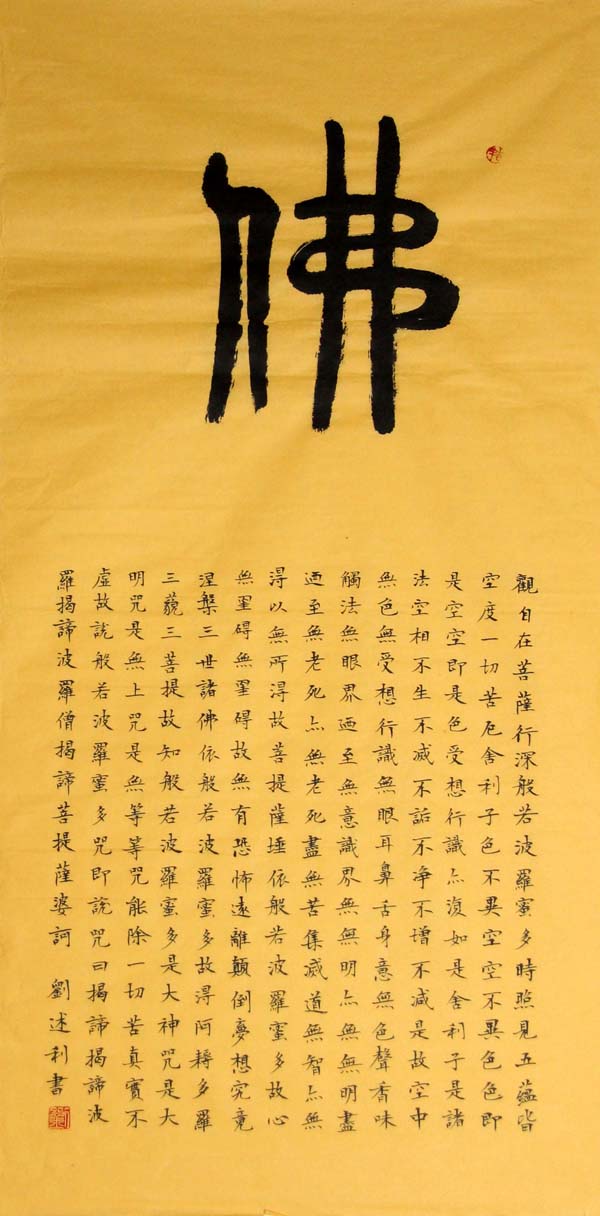 佛
觀自在菩薩行深般若波羅蜜多時照見五蘊皆
空度一切苦厄舍利子色不異空空不異色色即
是空空即是色受想行識亦復如是舍利子是諸
法空相不生不滅不垢不净不增不減是故空中
無色無受想行識無眼耳鼻舌身意無色聲香味
觸法無眼界迺至無意識界無無明亦無無明盡
迺至無老死亦無老死盡無苦集滅道無智亦無
得以無所得故菩提薩埵依般若波羅蜜多故心
無罣碍無罣碍故無有恐怖遠離顛倒夢想究竟
涅槃三世諸佛依般若波羅蜜多故得阿耨多羅
三藐三菩提故知般若波羅蜜多是大神咒是大
明咒是無上咒是無等等咒能除一切苦真實不
虛故說般若波羅蜜多咒即說咒曰揭諦揭諦波
羅揭諦波羅僧揭諦菩提薩婆訶 劉述利書